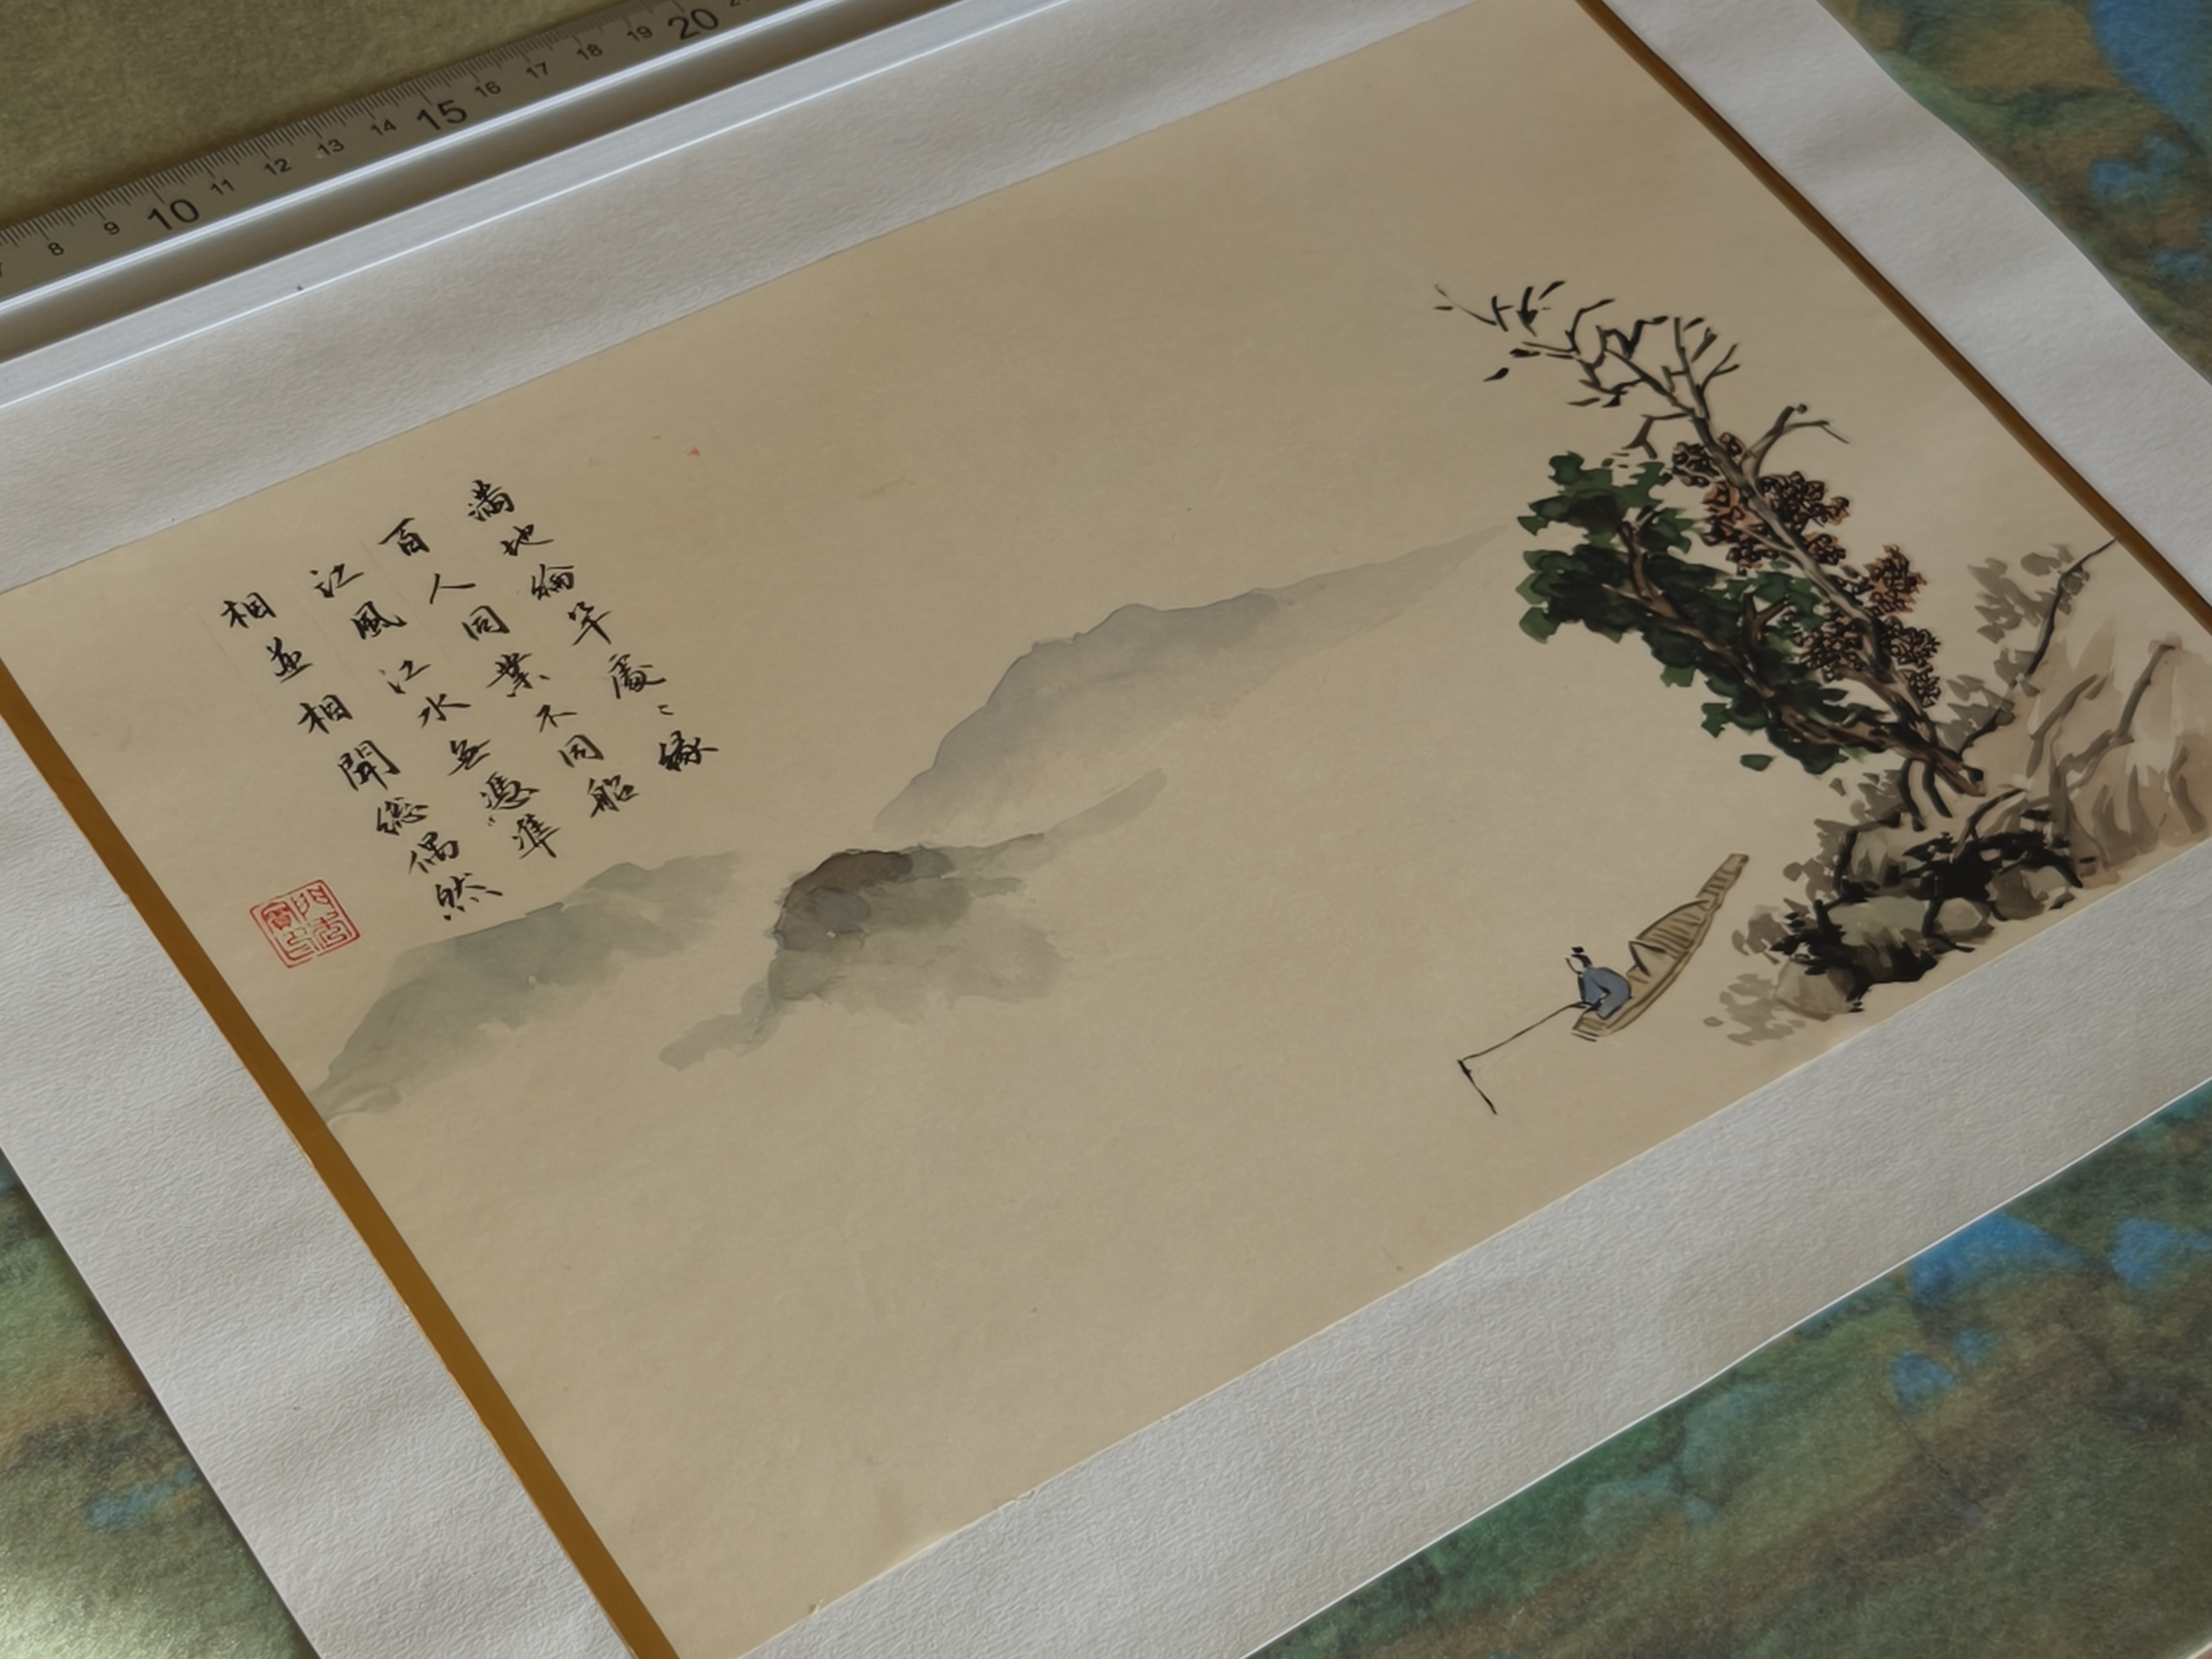 满地綸竿處〻緣
百人同業不同船
江風江水無憑準
相並相聞總偶然
7 8 9 10 11 12 13 14 15 16 17 18 19 20